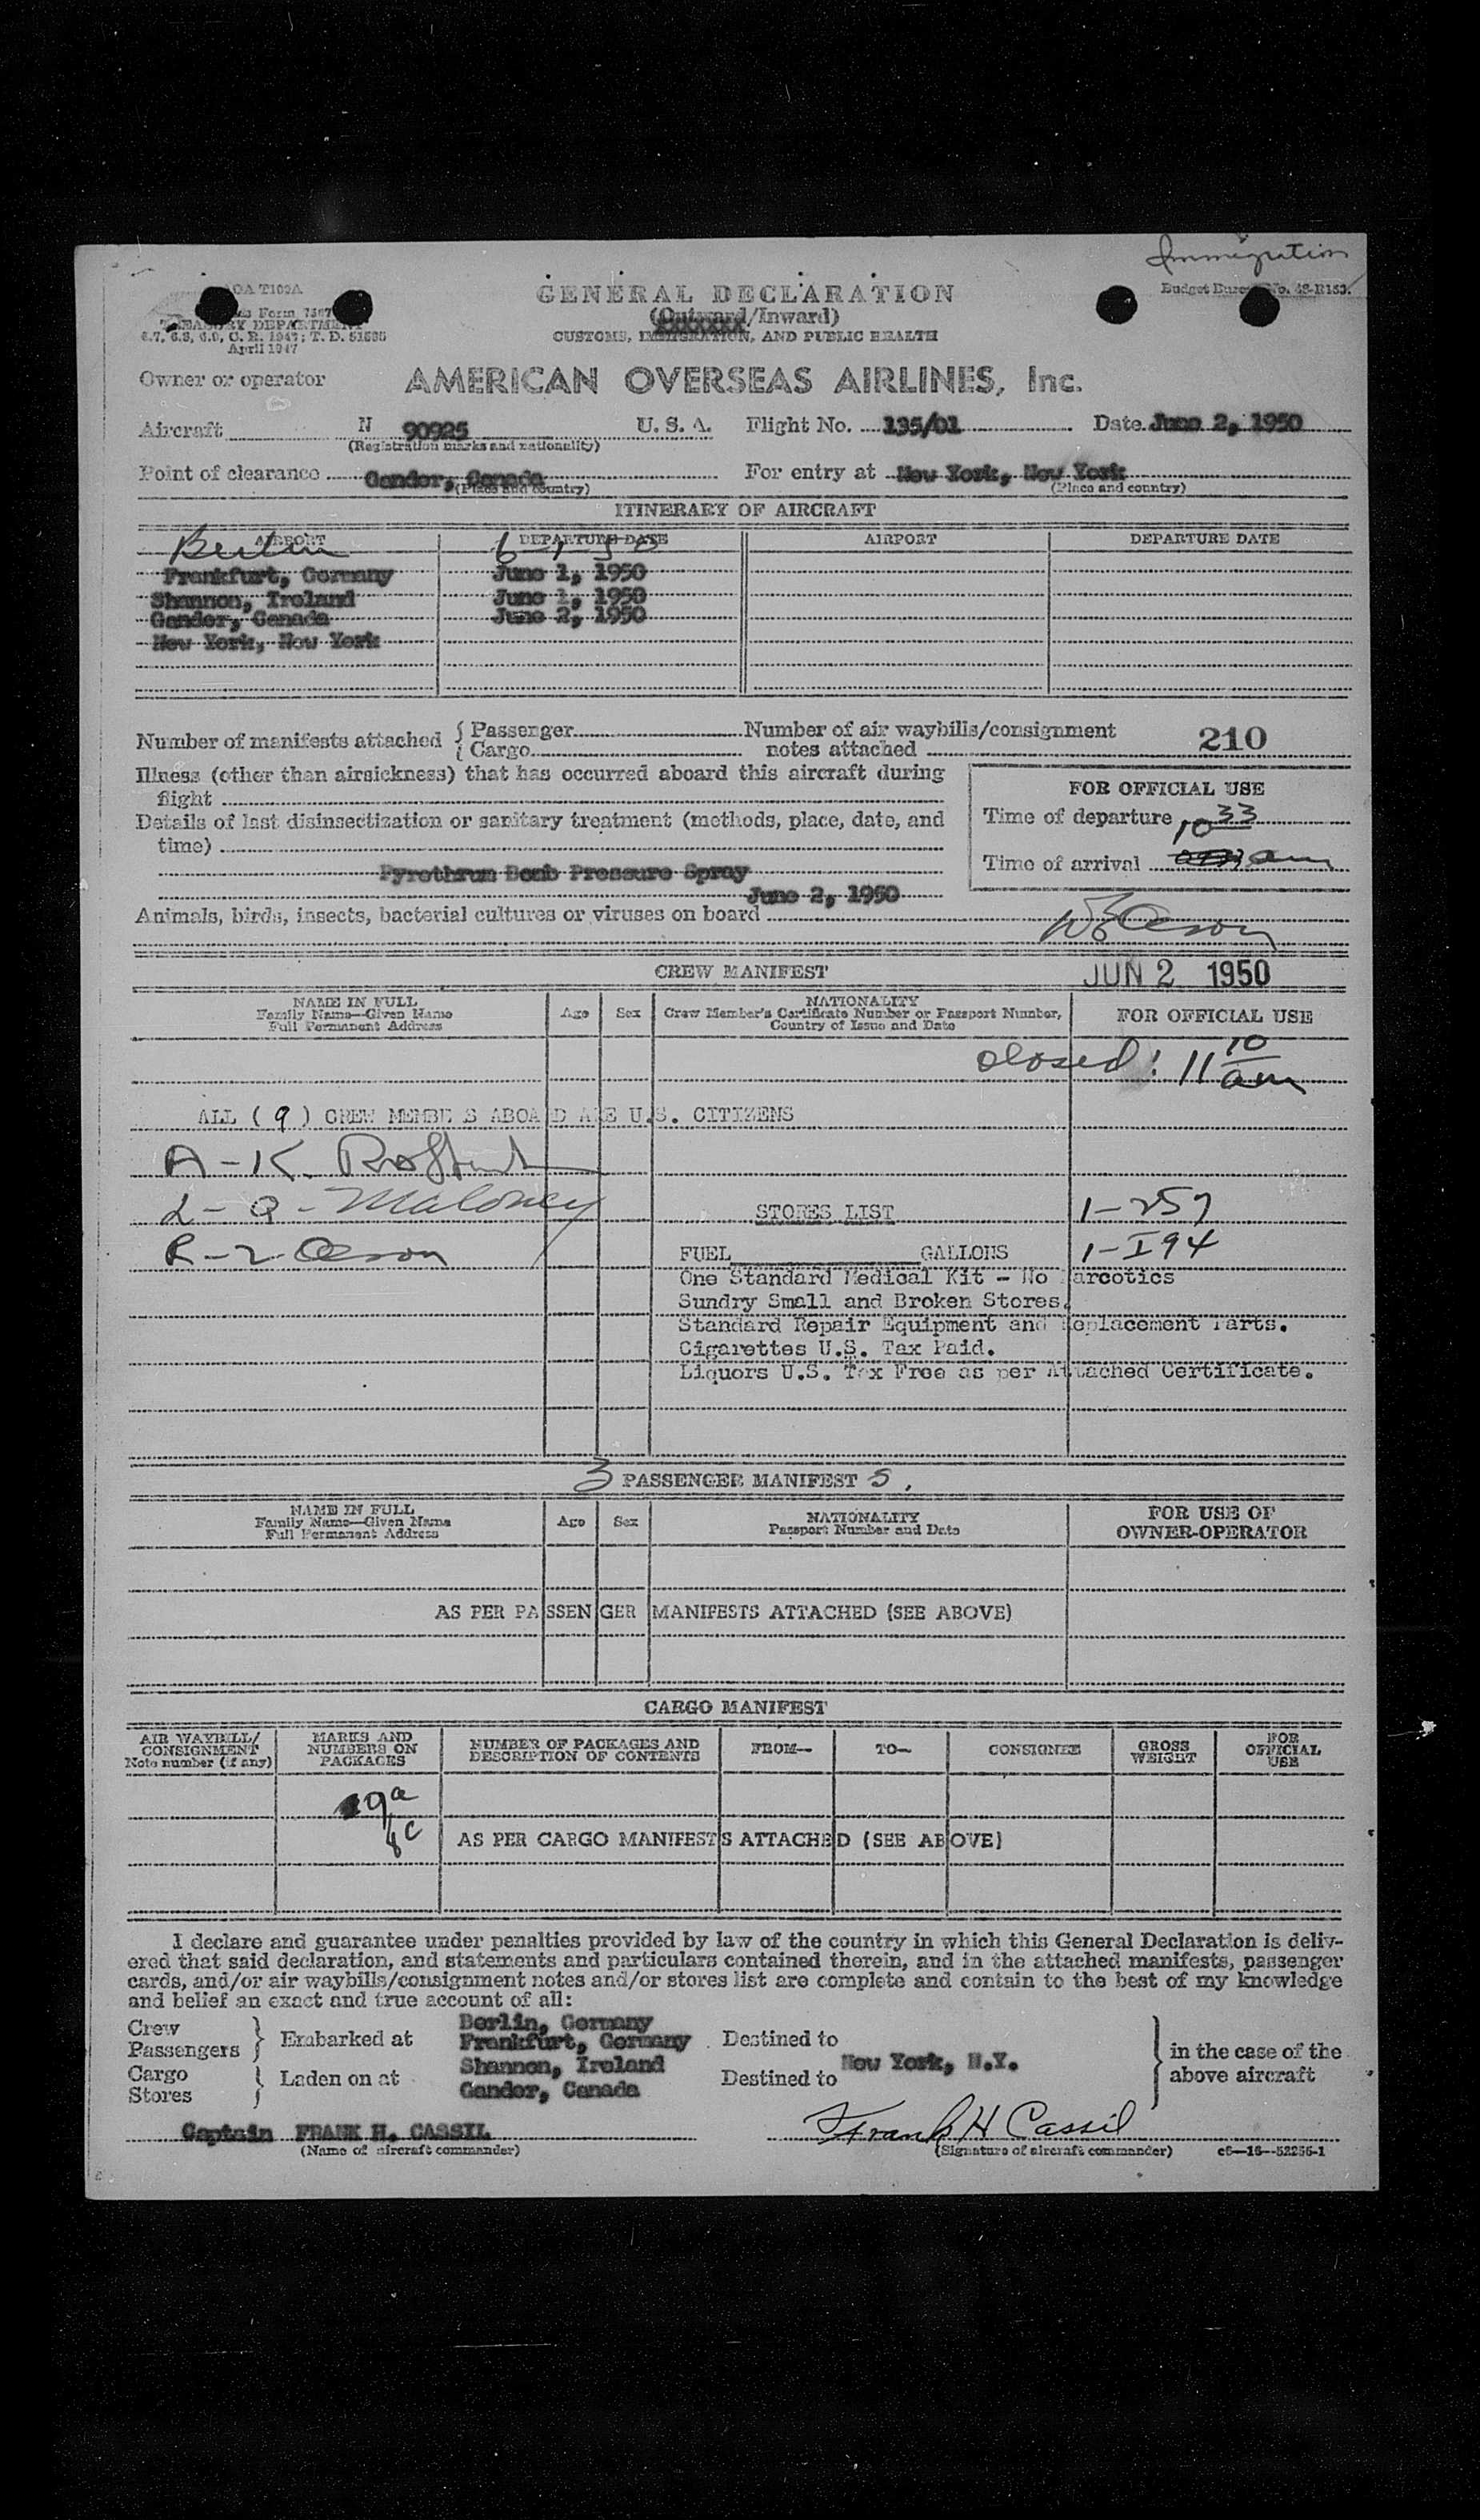 Immigration
AOA T100A
Form 7507
TREASURY DEPARTMENT
6.7, 6.8, 6.9, C. R. 1947; T. D. 51585
April 1947
Budget Bureau No. 48-R153.
GENERAL DECLARATION
(Outward/Inward)
CUSTOMS, IMMIGRATION, AND PUBLIC HEALTH
Owner or operator AMERICAN OVERSEAS AIRLINES, Inc.
Aircraft N 90925 U. S. A. Flight No. 135/01 Date June 2, 1950
(Registration marks and nationality)
Point of clearance Gander, Canada For entry at New York, New York
(Place and country) (Place and country)
ITINERARY OF AIRCRAFT
AIRPORT DEPARTURE DATE AIRPORT DEPARTURE DATE
Berlin 6-1-50
Frankfurt, Germany June 1, 1950
Shannon, Ireland June 1, 1950
Gander, Canada June 2, 1950
New York, New York
Number of manifests attached { Passenger Number of air waybills/consignment
{ Cargo notes attached 210
Illness (other than airsickness) that has occurred aboard this aircraft during
flight
Details of last disinsectization or sanitary treatment (methods, place, date, and
time)
Pyrethrum Bomb Pressure Spray
June 2, 1950
FOR OFFICIAL USE
Time of departure
10 33
Time of arrival am
Animals, birds, insects, bacterial cultures or viruses on board
CREW MANIFEST JUN 2 1950
NAME IN FULL
Family Name—Given Name
Full Permanent Address
Age Sex
NATIONALITY
Crew Member's Certificate Number or Passport Number,
Country of Issue and Date
FOR OFFICIAL USE
Closed! 11 10 am
ALL (9) CREW MEMBE S ABOARD ARE U.S. CITIZENS
A - K
L - Q - Maloney
R - Z Oeson
STORES LIST 1-257
FUEL GALLONS 1-I94
One Standard Medical Kit - No Narcotics
Sundry Small and Broken Stores.
Standard Repair Equipment and Replacement Parts.
Cigarettes U.S. Tax Paid.
Liquors U.S. Tax Free as per Attached Certificate.
3 PASSENGER MANIFEST S.
NAME IN FULL
Family Name—Given Name
Full Permanent Address
Age Sex
NATIONALITY
Passport Number and Date
FOR USE OF
OWNER-OPERATOR
AS PER PASSENGER MANIFESTS ATTACHED (SEE ABOVE)
CARGO MANIFEST
AIR WAYBILL/
CONSIGNMENT
Note number (if any)
MARKS AND
NUMBERS ON
PACKAGES
NUMBER OF PACKAGES AND
DESCRIPTION OF CONTENTS
FROM— TO— CONSIGNEE
GROSS
WEIGHT
FOR
OFFICIAL
USE
9a
AS PER CARGO MANIFESTS ATTACHED (SEE ABOVE)
I declare and guarantee under penalties provided by law of the country in which this General Declaration is deliv-
ered that said declaration, and statements and particulars contained therein, and in the attached manifests, passenger
cards, and/or air waybills/consignment notes and/or stores list are complete and contain to the best of my knowledge
and belief an exact and true account of all:
Crew
Passengers } Embarked at
Cargo
Stores } Laden on at
Berlin, Germany
Frankfurt, Germany
Shannon, Ireland
Gander, Canada
Destined to
Destined to New York, N.Y.
} in the case of the
above aircraft
Captain FRANK H. CASSIL Frank H Cassil
(Name of aircraft commander) (Signature of aircraft commander) c6—16—52256-1